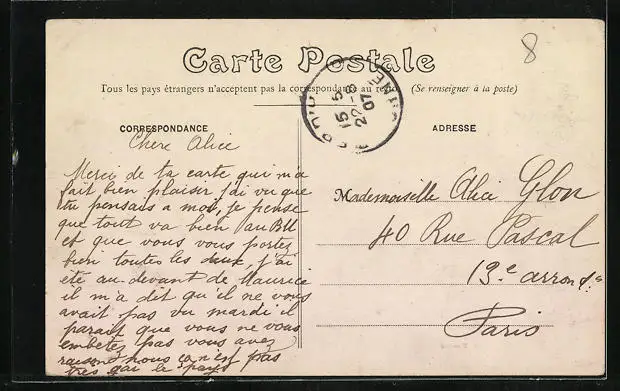 Carte Postale
Tous les pays étrangers n'acceptent pas la correspondance au recto. (Se renseigner à la poste)
8
15 - 5
22 - 8
07
CORRESPONDANCE
Chère Alice
Merci de ta carte qui m'a
fait bien plaisir j'ai vu que
tu pensais a moi, je pense
que tout va bien au
et que vous vous portez
bien toutes les deux, j'ai
été au devant de Maurice
il m'a dit qu'il ne vous
avait pas vu mardi il
parait que vous ne vous
embêtez pas vous avez
raison nous ça n'est pas
très gai le pays
ADRESSE
Mademoiselle Alice Glon
40 Rue Pascal
13e arrond.
Paris